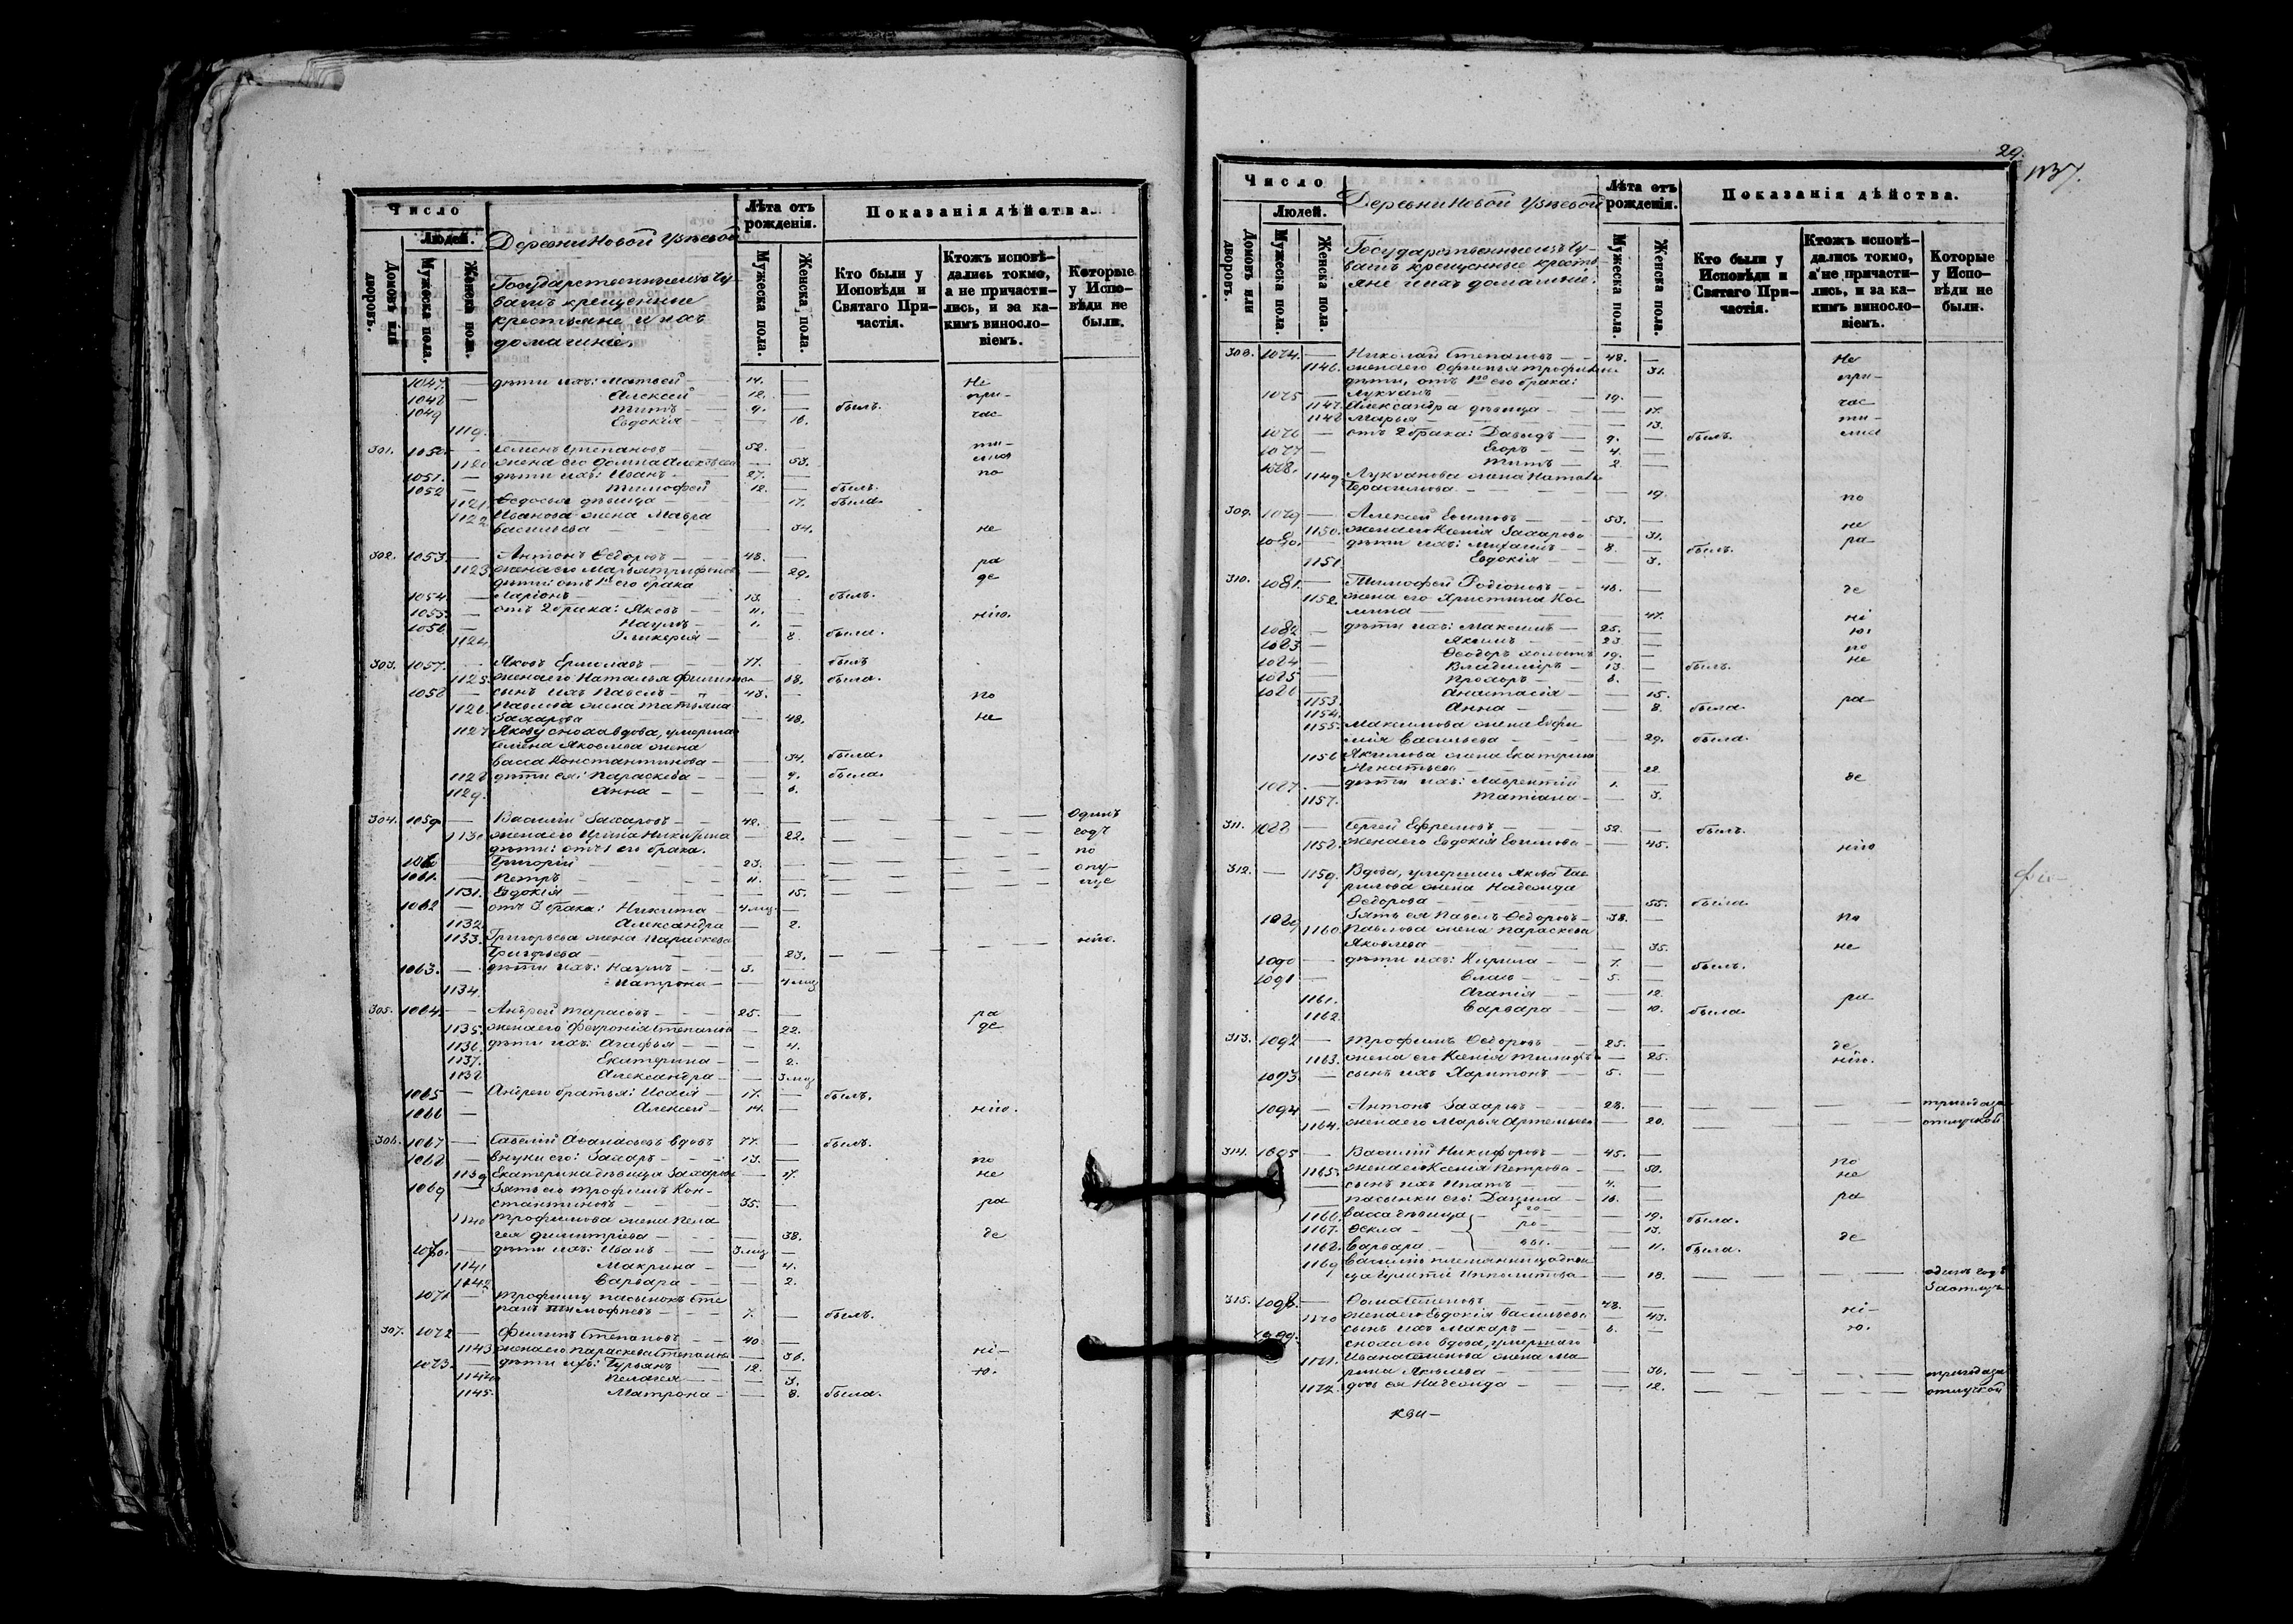 Число
Людей.
Домовъ или дворовъ.
Мужеска пола.
Женска пола.
Деревни Новой Узеевой
Государственные изъ Чу-
вашъ крещенные
крестьяне и ихъ
домашніе.
Лѣта отъ рожденія.
Мужеска пола.
Женска пола.
Показанія дѣйства.
Кто были у Исповѣди и Святаго При-частія.
Ктожъ исповѣ-дались токмо, а не причасти-лись, и за ка-кимъ винносло-віемъ.
Которые у Испо-вѣди не были.
1047. — дѣти ихъ: Матвей — 14. — Не
1048 — Алексей 12. — при-
1049 — Титъ — 9. — былъ. час
1119. Евдокія — — 16.
301. 1050. — Семенъ Степановъ — 52. — ти-
1120 жена его Домна Алексѣева — 53. лися
1051. — дѣти ихъ: Иванъ — 27. — по
1052 — Тимофей 12. — былъ.
1121. Ѳедосья дѣвица — — 17. была.
1122. Иванова жена Мавра
Васильева — 34. не
302. 1053. — Антонъ Ѳедоровъ — 48. — ра
1123. жена его Марья Трифонова — 29. де
дѣти: отъ 1го его брака
1054 — Ларіонъ — 13. — былъ.
1055. — отъ 2 брака: Яковъ — 11. —
1056 — Наумъ — 1. — нію.
1124 Гликерія — — 8. была.
303. 1057. — Яковъ Ермиловъ — 77. — былъ
1125. жена его Наталья Филипова — 68. была.
1058 — сынъ ихъ Павелъ — 43. — по
1126. Павлова жена Татьяна
Захарова — — 48. не
1127 Якову сноха вдова, умершаго
Семена Яковлева жена
Васса Константинова — — 34. была.
1128 дѣти ея: Параскева — — 9. была.
1129. Анна — — 6.
304. 1059 — Василій Захаровъ — 42. — Одинъ
1130 жена его Ирина Никитина — 22. годъ
дѣти: отъ 1 его брака. по
1060 — Григорій — 23. — опу-
1061. — Петръ — 11. — ще
1131. Евдокія — — 15.
1062 — отъ 3. брака: Никита — 4 мц —
1132. Александра — 2.
1133. Григорьева жена Параскева нію.
Григорьева — — 23.
1063. — дѣти ихъ: Наумъ — 3. —
1134. Матрона — — 4 мц
305. 1064. — Андрей Тарасовъ — 25. — ра
1135. жена его Февронія Степанова — 22. де
1136. дѣти ихъ: Агафья — — 4.
1137. Екатерина — — 2.
1138 Александра — — 3 мц
1065 — Андрею братья: Исаія — 17. — былъ.
1066 — Алексей — 14. — нію.
306. 1067 — Савелій Аѳанасьевъ вдовъ 77. — былъ.
1068 — внуки его: Захаръ — 13. — по
1139 Екатерина дѣвица Захарова — 17. не
1069 — Зять его Трофимъ Кон-
стантиновъ — 35. — ра
1140 Трофимова жена Пела
гея Димитріева — — 38. де
1070. — дѣти ихъ: Иванъ — 3 мц —
1141 Макрина — — 4.
1142 Варвара — — 2.
1071 — Трофиму пасынокъ Сте
панъ Тимофеевъ — 7. — былъ.
307. 1072 — Филипъ Степановъ — 40. —
1143 жена его Параскева Степанова — 36. ні-
1073. — дѣти ихъ: Гурьянъ — 12. —
1144 Пелагея — — 3. ю.
1145. Матрона — — 8. была.
29.
Число
Людей.
Домовъ или дворовъ.
Мужеска пола.
Женска пола.
Деревни Новой Узеевой
Государственные изъ Чу-
вашъ крещенные кресть
яне и ихъ домашніе.
Лѣта отъ рожденія.
Мужеска пола.
Женска пола.
Показанія дѣйства.
Кто были у Исповѣди и Святаго При-частія.
Ктожъ исповѣ-дались токмо, а не причасти-лись, и за ка-кимъ винносло-віемъ.
Которые у Испо-вѣди не были.
308. 1074. — Николай Степановъ — 48. — Не
1146. жена его Офимья Трофимова 31. при-
дѣти, отъ 1го его брака:
1075 — Лукіанъ — 19. — час
1147. Александра дѣвица — — 17. ти-
1148 Марья — — 13.
1076 — отъ 2 брака: Давыдъ — 9. — былъ. лися
1077 — Егоръ — 4. —
1078. Титъ — 2. —
1149. Лукіанова жена Наталья
Герасимова — 19. по
309. 1079 — Алексей Ефимовъ — 53. — не
1150. жена его Ксенія Захарова — 31. ра-
1080. — дѣти ихъ: Михаилъ — 8. — былъ.
1151 Евдокія — — 3.
310. 1081. — Тимофей Родіоновъ — 48. — де
1152. жена его Христина Кос
мина — 47. ні
1082 — дѣти ихъ: Максимъ — 25. — ю.
1083 — Якимъ — 23. — по
1084 — Ѳеодоръ холостъ 19. — не
1085 — Владиміръ — 13. — былъ.
1086 — Прохоръ — 6. —
1153. Анастасія — — 15. ра
1154. Анна — — 8. была.
1155. Максимова жена Евфи
мія Васильева — — 29. была.
1156 Якимова жена Екатерина
Игнатьева — 22 де
1087. — дѣти ихъ: Лаврентій 1. —
1157. Татіана — — 3.
311. 1088 — Сергей Ефремовъ — 52. — былъ.
1158. жена его Евдокія Ефимова — 45. нію
312. — 1159. Вдова, умершаго Якова Гав
рилова жена Надежда
Ѳедорова — 55. была.
1089 Зять ея Павелъ Ѳедоровъ — 38. — по
1160. Павлова жена Параскева
Яковлева — 35. не
1090 — дѣти ихъ: Кирила — 7. — былъ.
1091 — Власъ — 5. —
1161. Агапія — — 12 ра
1162. Варвара — — 10. была.
313. 1092 — Трофимъ Ѳедоровъ — 25. — де
1163. жена его Ксенія Тимофеева — 25. нію.
1093. — сынъ ихъ Харитонъ — 5. —
1094 — Антонъ Захаровъ — 28. — три года за
1164. жена его Марья Артемьева — 20. отлучкой
314. 1095 — Василій Никифоровъ — 45. — по
1165. жена его Ксенія Петрова — 50. не
сынъ ихъ Ипатъ — 4. —
пасынки его: Данила — 16. — ра
1166. Васса дѣвица Его- — 19. была.
1167. Ѳекла — ро- — 13.
1168. Варвара — вы. — 11. была. де
1169 Василію племянница
Ипполитова — 18. одинъ годъ
315. 1098. — Ѳома Семеновъ — 48. — ні-
1170 жена его Евдокія Васильева — 43.
1099. сынъ ихъ Макаръ — 6. — ю.
сноха его вдова, умершаго
1171. Ивана Семенова жена Ма-
рина Яковлева — 36. три года за
1172. дочь ея Надежда — — 12. отлучкой